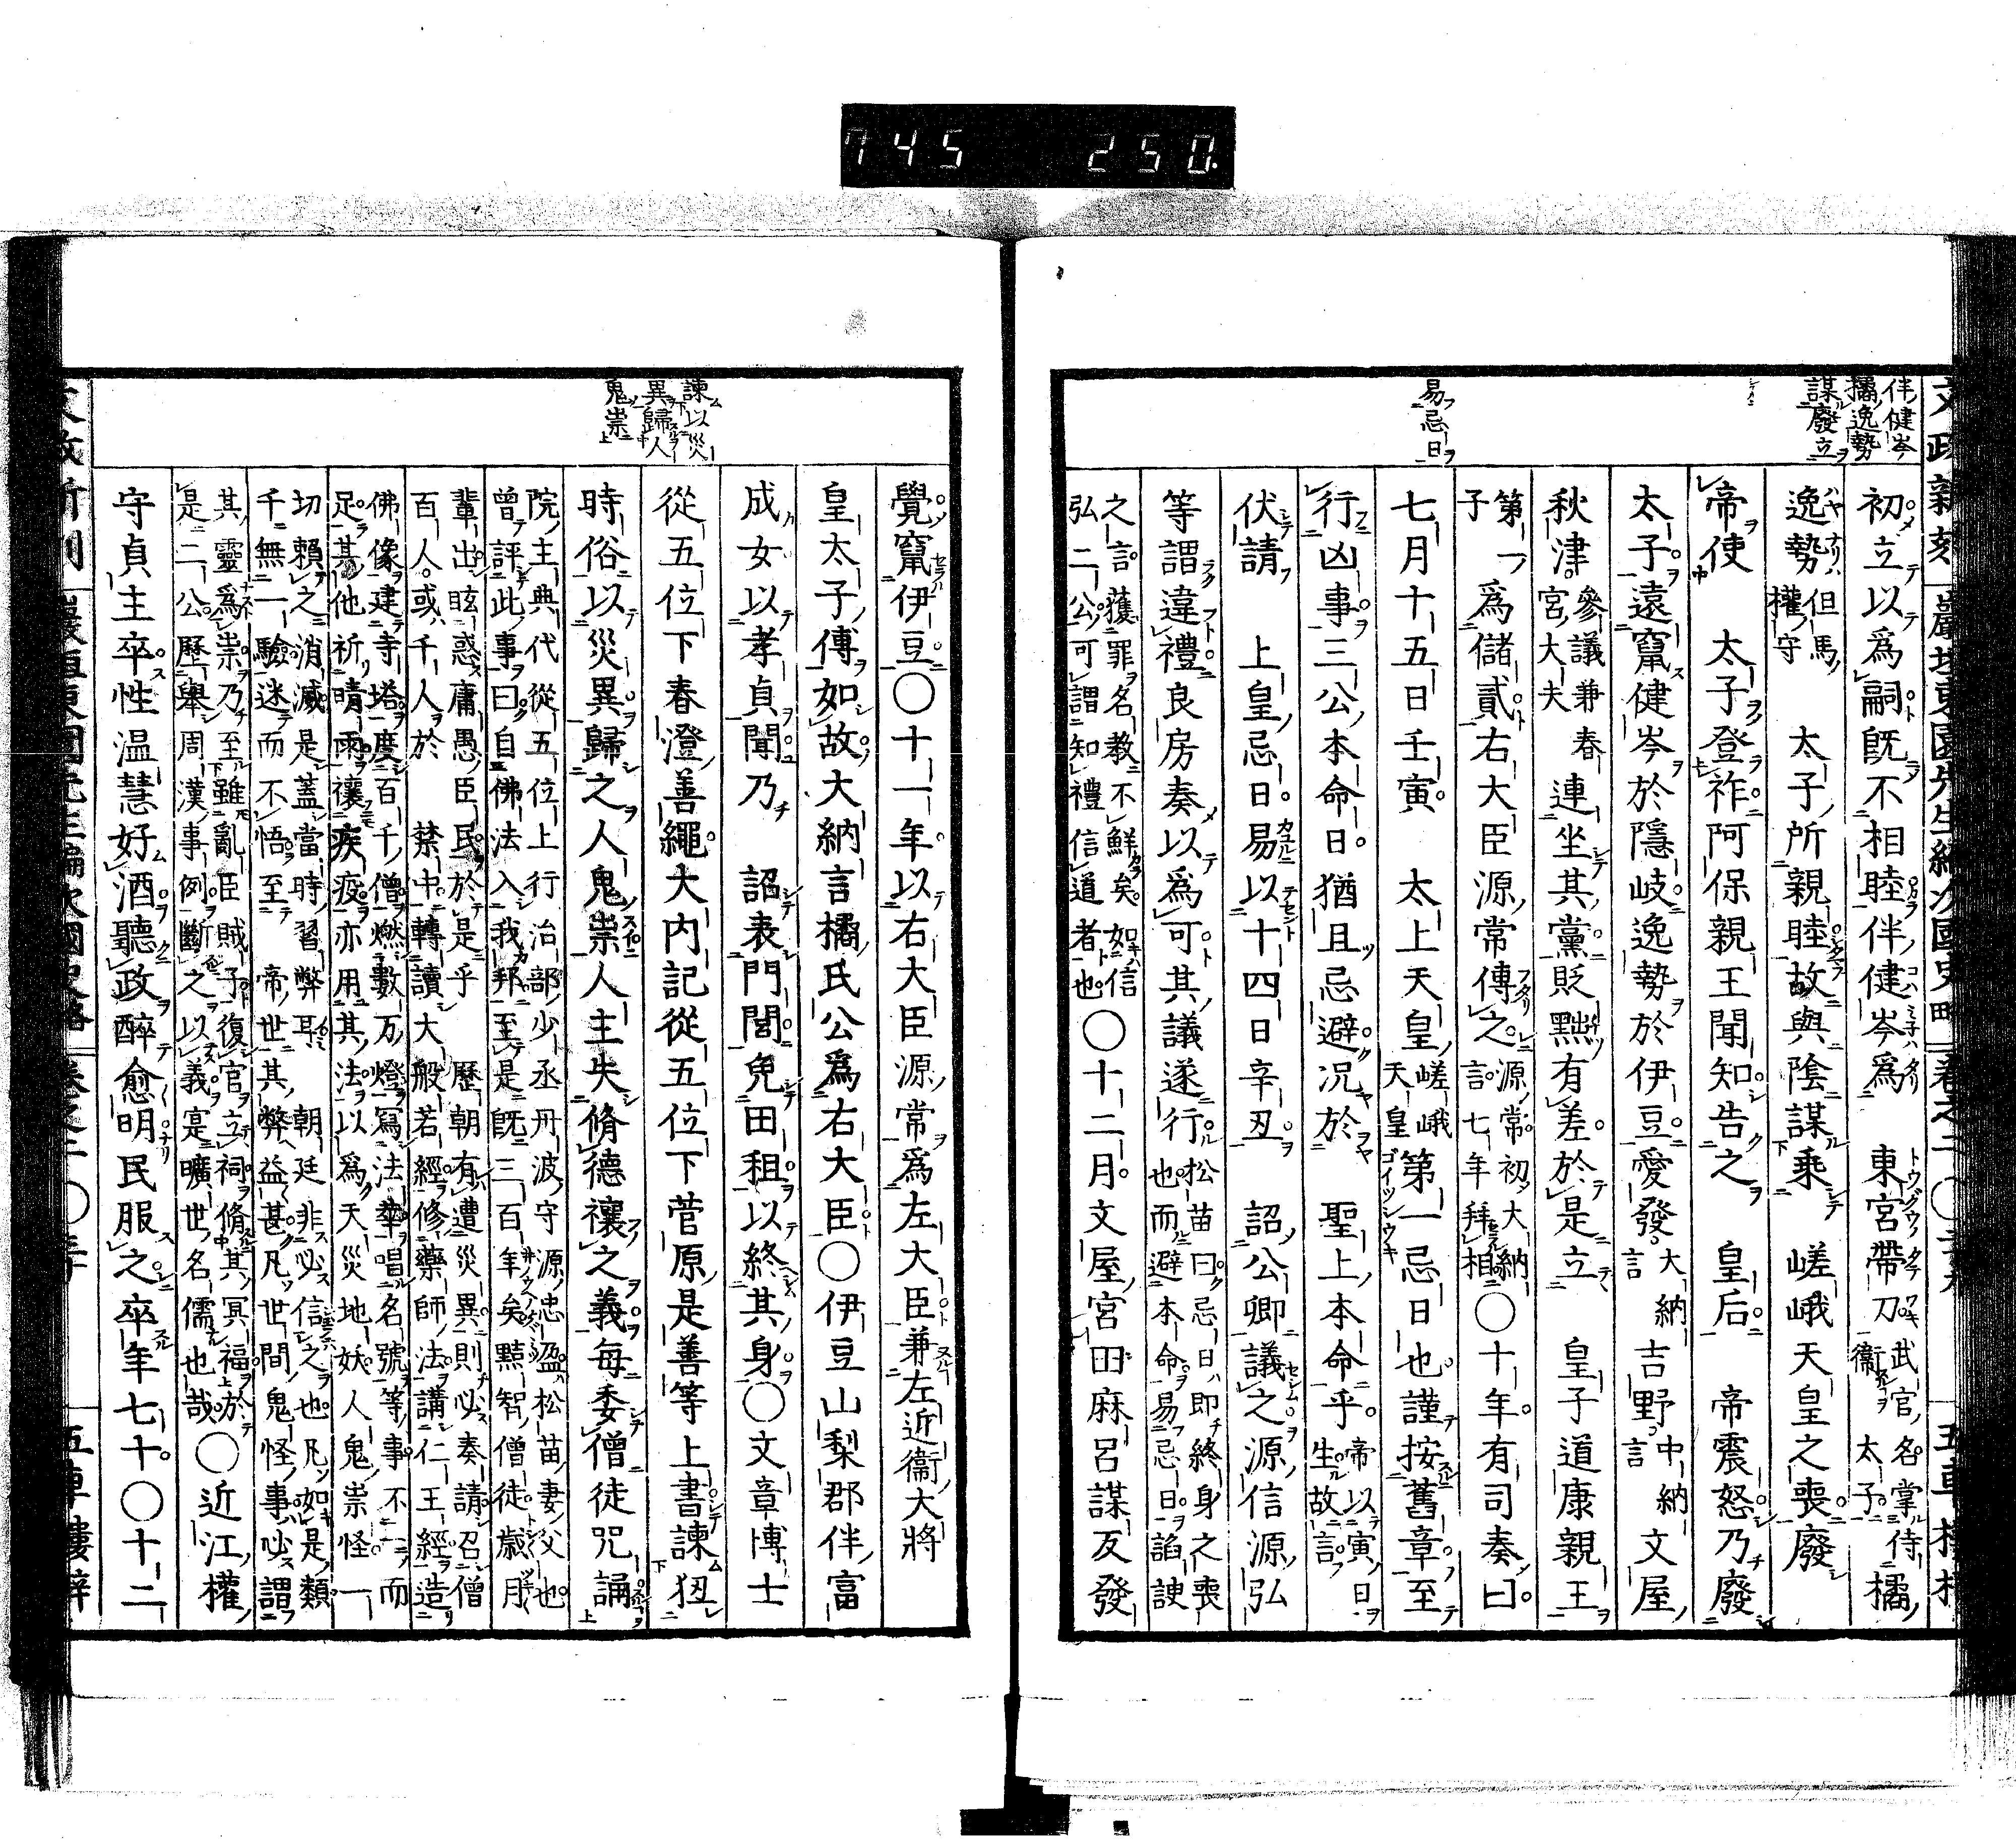 745 250
伴健岑
橘逸勢
謀廢立
易忌日
初立以爲嗣既不相睦伴健岑爲 東宮帶刀武官名掌侍衞太子橘
逸勢但馬權守 太子所親睦故與陰謀乘 嵯峨天皇之喪廢
帝使 太子登祚阿保親王聞知告之 皇后 帝震怒乃廢
太子遠竄健岑於隱岐逸勢於伊豆愛發大納言吉野中納言文屋
秋津參議兼春宮大夫連坐其黨貶黜有差於是立 皇子道康親王
第一子爲儲貳右大臣源常傳之源常初大納言七年拜相〇十年有司奏曰
七月十五日壬寅 太上天皇嵯峨天皇第一忌日也謹按舊章至
行凶事三公本命日猶且忌避况於 聖上本命乎帝以寅日生故言
伏請 上皇忌日易以十四日辛丑 詔公卿議之源信源弘
等謂違禮良房奏以爲可其議遂行松苗曰忌日即終身之喪也而避本命易忌日諂諛
之言獲罪名教不鮮矣如信弘二公可謂知禮信道者也〇十二月文屋宮田麻呂謀反發
覺竄伊豆〇十一年以右大臣源常爲左大臣兼左近衞大將
皇太子傅如故大納言橘氏公爲右大臣〇伊豆山梨郡伴富
成女以孝貞聞乃 詔表門閭免田租以終其身〇文章博士
從五位下春澄善繩大內記從五位下菅原是善等上書諫
諫以災
異歸人
鬼祟
時俗以災異歸之人鬼祟人主失脩德禳之義每委僧徒咒誦
院主典代從五位上行治部少丞丹波守源忠盈松苗妻父也
曾評此事曰自佛法入我邦至是既三百年矣黠智僧徒歲月
輩出眩惑庸愚臣民於是乎 歷朝有遭災異則必奏請召僧
百人或千人於 禁中轉讀大般若經修藥師法講仁王經造
佛像建寺塔度百千僧燃數万燈寫法華唱名號等事不一而
足其他祈晴雨禳疾疫亦用其法以爲天災地妖人鬼祟怪一
切賴之消滅是蓋當時習弊耳 朝廷非必信之也凡如是類
千無一驗迷而不悟至 帝世其弊益甚凡世間鬼怪事必謂
其靈爲祟乃至雖亂臣賊子復官立祠脩其冥福於
是二公歷舉周漢事例斷之以義寔曠世名儒也哉〇近江權
守貞主卒性温慧好酒聽政醉愈明民服之卒年七十〇十二